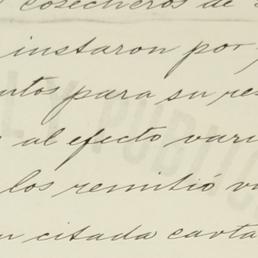 cosecheros de
instaron por
ntos para su re
al efecto vari
los remitió v
citada carta